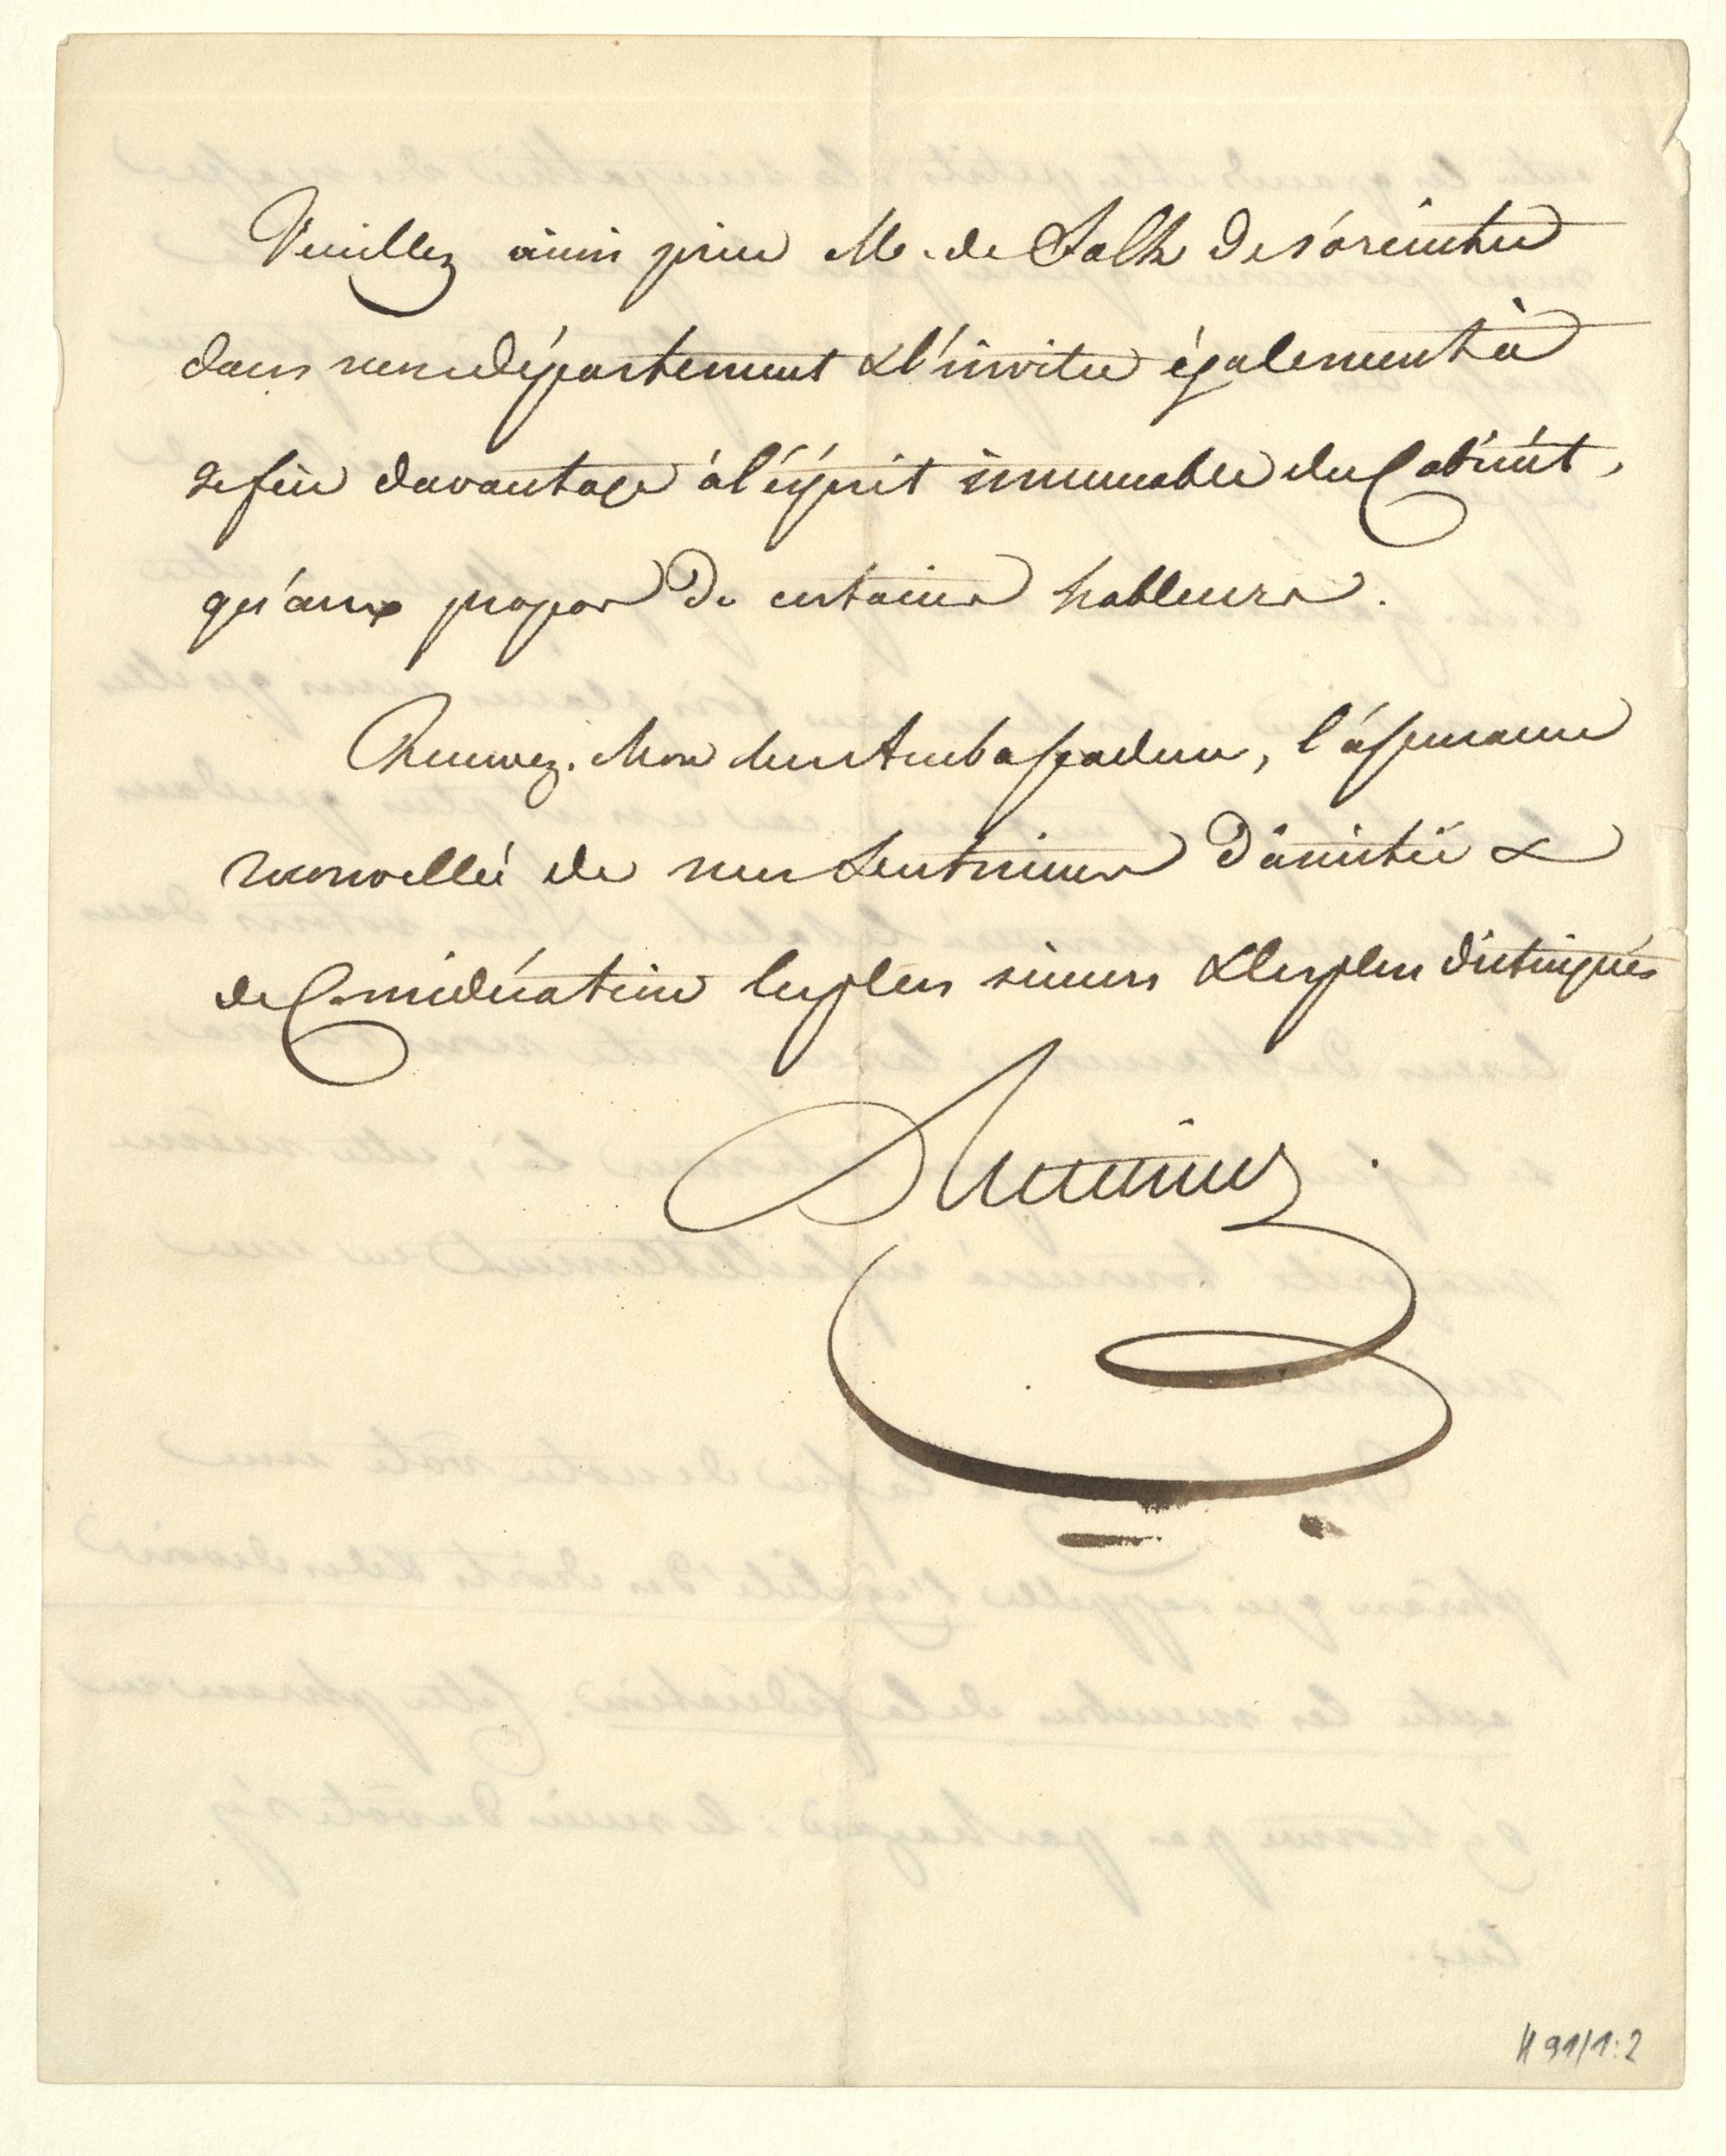 Veuillez ainsi prier M. de Falk de s'orienter
dans mon département & l'inviter également à
se fier davantage à l'ésprit immuable du Cabinét,
qu'aux propos de certains hableurs.
Recevez, Mon cher Ambassadeur, l'assurance
renouvellée de mes sentimens d'amitié &
de Considération les plus sincers & les plus distingués
H 91/1:2